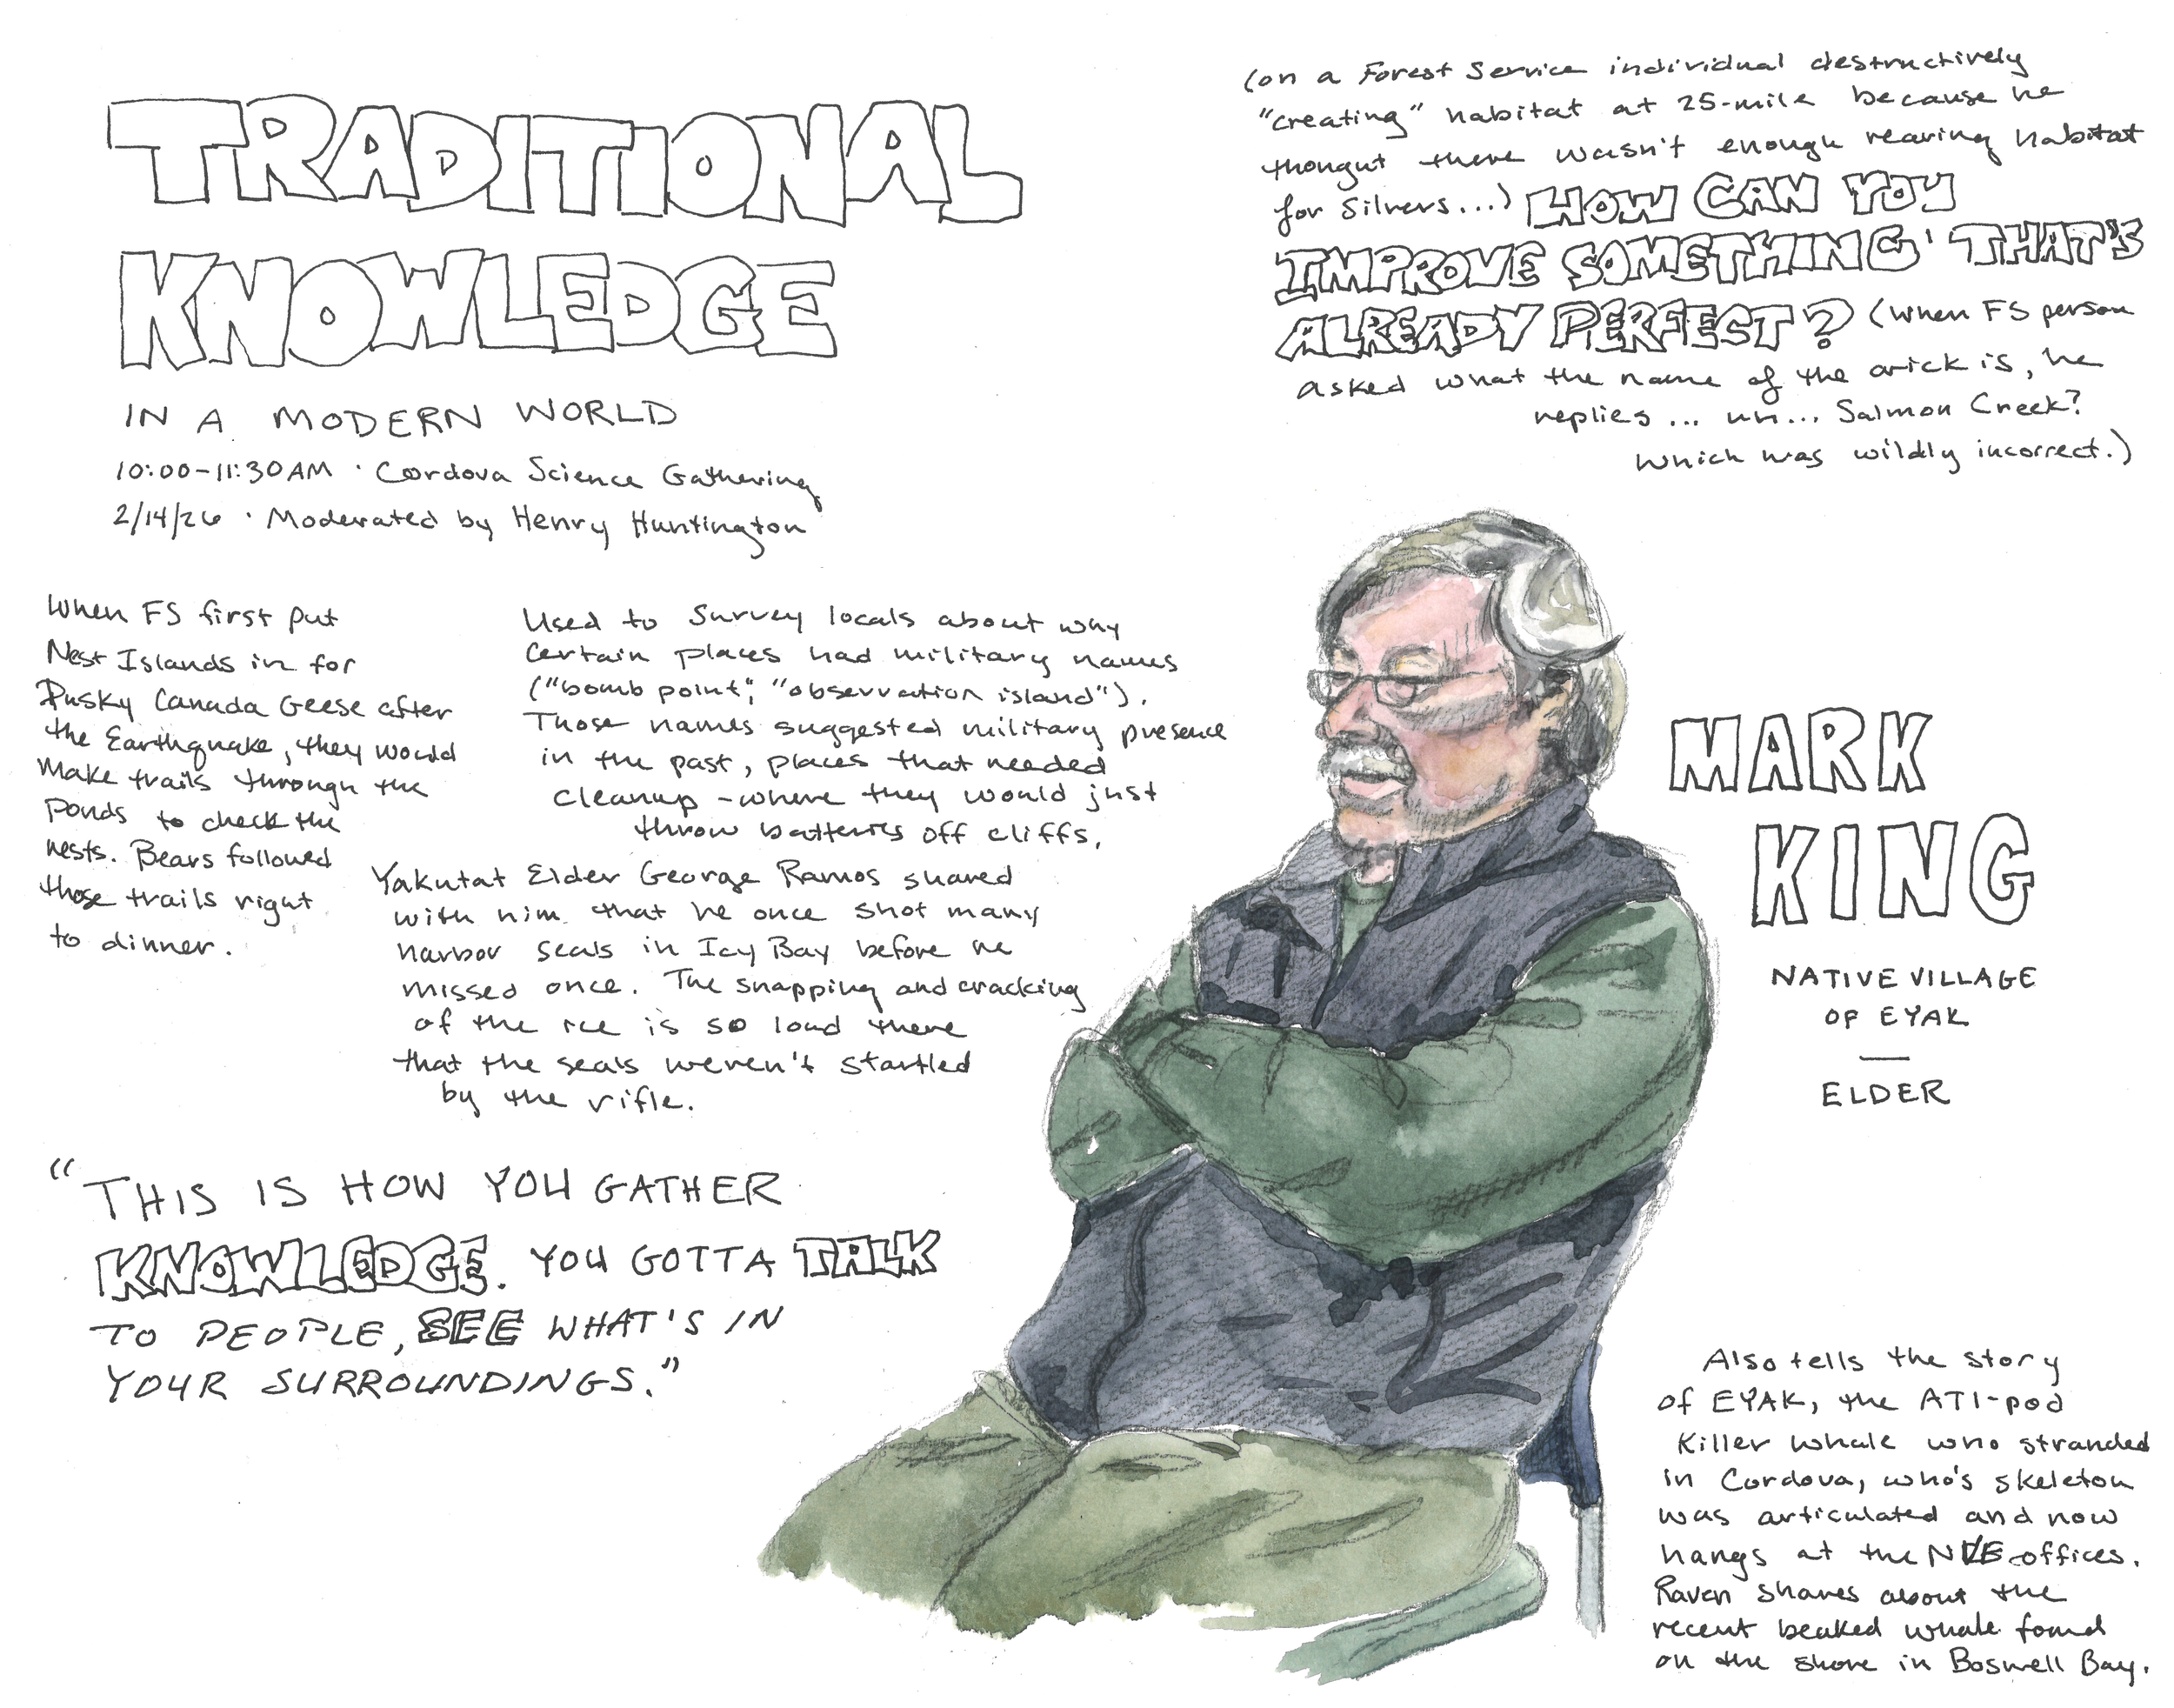 TRADITIONAL
KNOWLEDGE
IN A MODERN WORLD
10:00-11:30AM · Cordova Science Gathering
2/14/26 · Moderated by Henry Huntington
(on a Forest Service individual destructively
"creating" habitat at 25-mile because he
thought there wasn't enough rearing habitat
for Silvers...) HOW CAN YOU
IMPROVE SOMETHING THAT'S
ALREADY PERFECT? (when FS person
asked what the name of the crick is, he
replies ... uh... Salmon Creek?
which was wildly incorrect.)
When FS first put
Nest Islands in for
Dusky Canada Geese after
the Earthquake, they would
make trails through the
ponds to check the
nests. Bears followed
those trails right
to dinner.
Used to survey locals about why
certain places had military names
("bomb point", "observation island").
Those names suggested military presence
in the past, places that needed
cleanup - where they would just
throw batteries off cliffs.
Yakutat Elder George Ramos shared
with him that he once shot many
harbor seals in Icy Bay before he
missed once. The snapping and cracking
of the ice is so loud there
that the seals weren't startled
by the rifle.
"THIS IS HOW YOU GATHER
KNOWLEDGE. YOU GOTTA TALK
TO PEOPLE, SEE WHAT'S IN
YOUR SURROUNDINGS."
MARK
KING
NATIVE VILLAGE
OF EYAK
—
ELDER
Also tells the story
of EYAK, the AT1-pod
Killer whale who stranded
in Cordova, who's skeleton
was articulated and now
hangs at the NVE offices.
Raven shares about the
recent beaked whale found
on the shore in Boswell Bay.